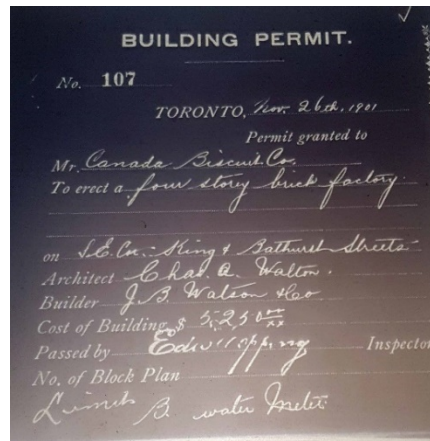 BUILDING PERMIT.
No. 107
TORONTO, Nov. 26th, 1901
Permit granted to
Mr. Canada Biscuit Co.
To erect a four storey brick factory.
on S.E. Cor. King & Bathurst Streets
Architect Chas. A. Walton.
Builder J.B. Watson & Co
Cost of Building $
Passed by Inspector
No. of Block Plan
B. water Meter